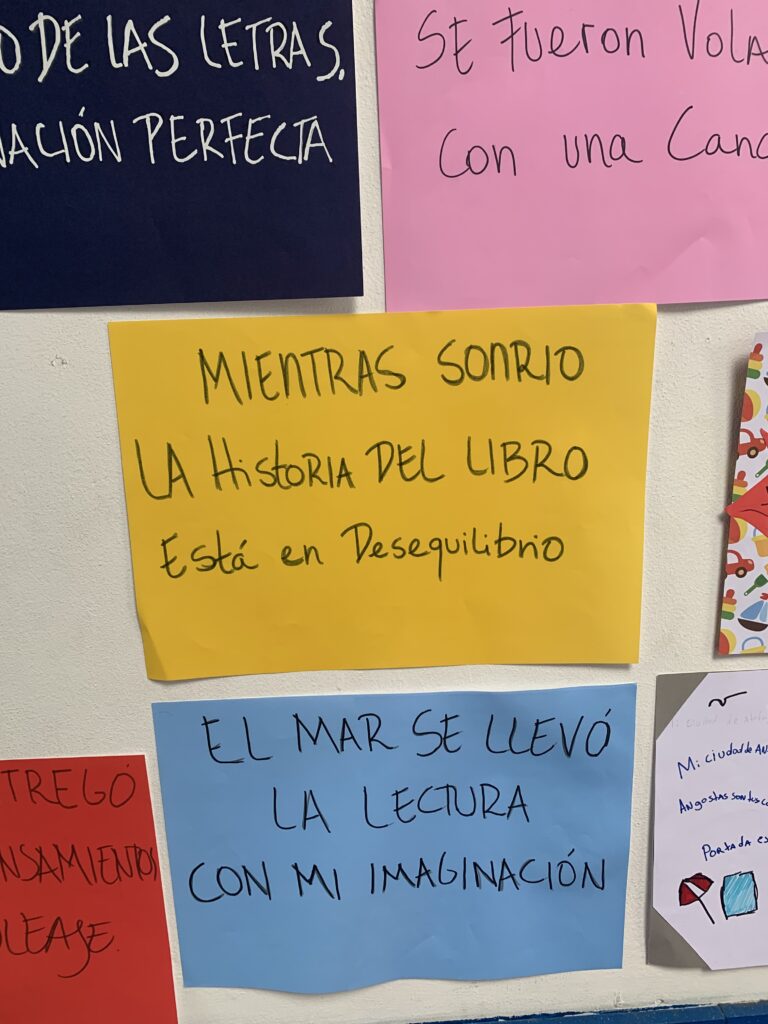 O DE LAS LETRAS.
NACIÓN PERFECTA
SE FUERON VOLA
Con una Canc
MIENTRAS SONRIO
LA HISTORIA DEL LIBRO
Está en Desequilibrio
EL MAR SE LLEVÓ
LA LECTURA
CON MI IMAGINACIÓN
TREGÓ
NSAMIENTOS
OLEAJE.
Mi ciudad de AN
ANGOSTAS SON TUS C
PORTADA ES